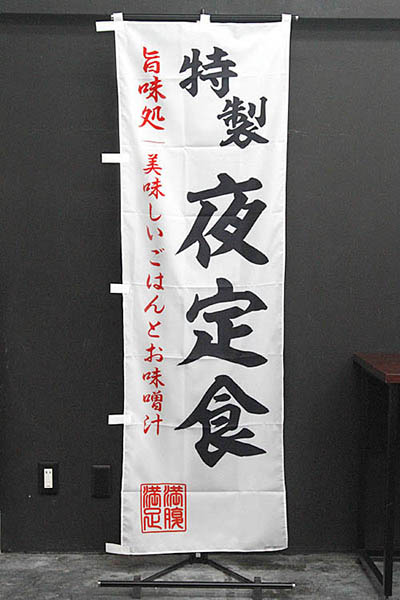 特製
夜定食
旨味処 | 美味しいごはんとお味噌汁
満腹
満足